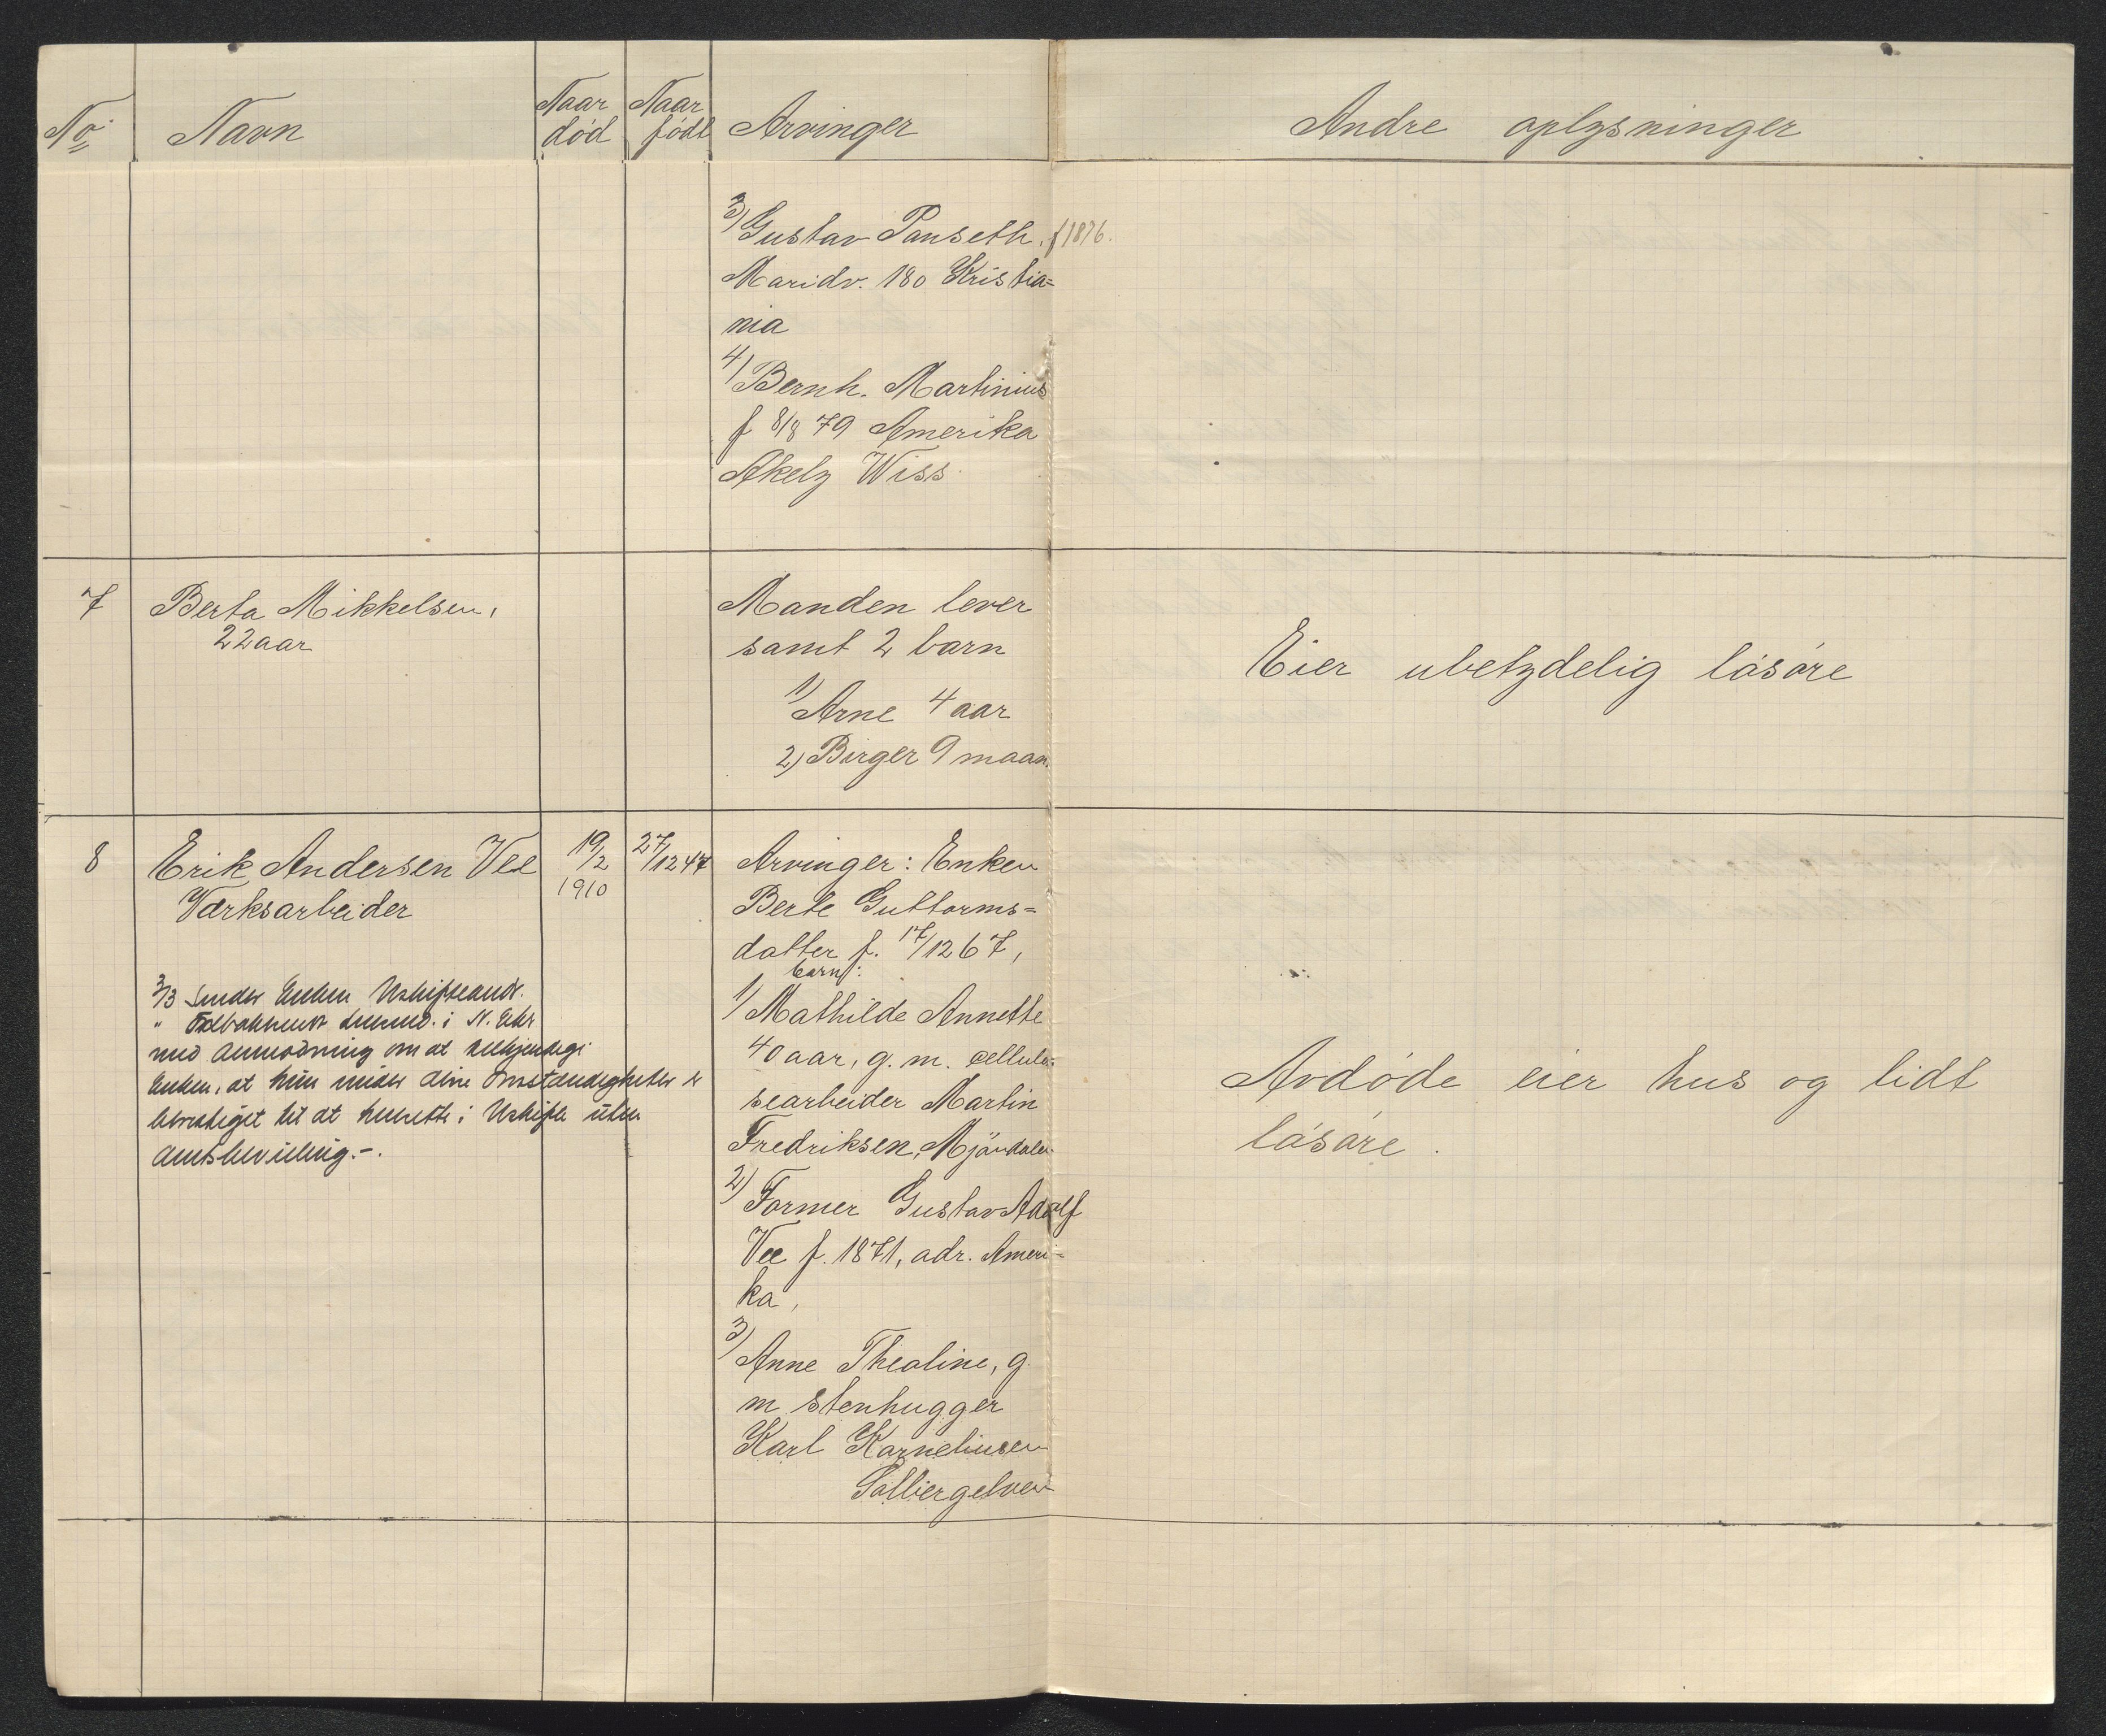 No
Navn
Naar død
Naar født
Arvinger
Andre oplysninger
3) Gustav Panseth. f 1876.
Maridv. 180 Kristia=
nia
4) Bernh. Martinius
f 8/8 79 Amerika
Akely Wiss.
7
Berta Mikkelsen,
22 aar
Manden lever
samt 2 barn
1) Arne 4 aar
2) Birger 9 maan.
Eier ubetydelig løsøre
8
Erik Andersen Vee
Værksarbeider
19/2
1910
27/12 47
3/3 Sender Enken Uskifteand.
med Anmodning om at
Enken, at hun under disse Omstændigheter er
berettiget til at hensitte i Uskifte uten
Amtsbevilling.-.
Arvinger: Enken
Berte Guttorms=
datter f. 17/12 67,
barn:
1) Mathilde Annette
40 aar, g. m. cellulo=
searbeider Martin
Fredriksen, Mjøndalen
2) Former Gustav Adolf
Vee f. 1871, adr. Ameri=
ka,
3) Anne Thealine, g.
m stenhugger
Karl Karneliusen
Solbergelven
Avdøde eier hus og lidt
løsøre.